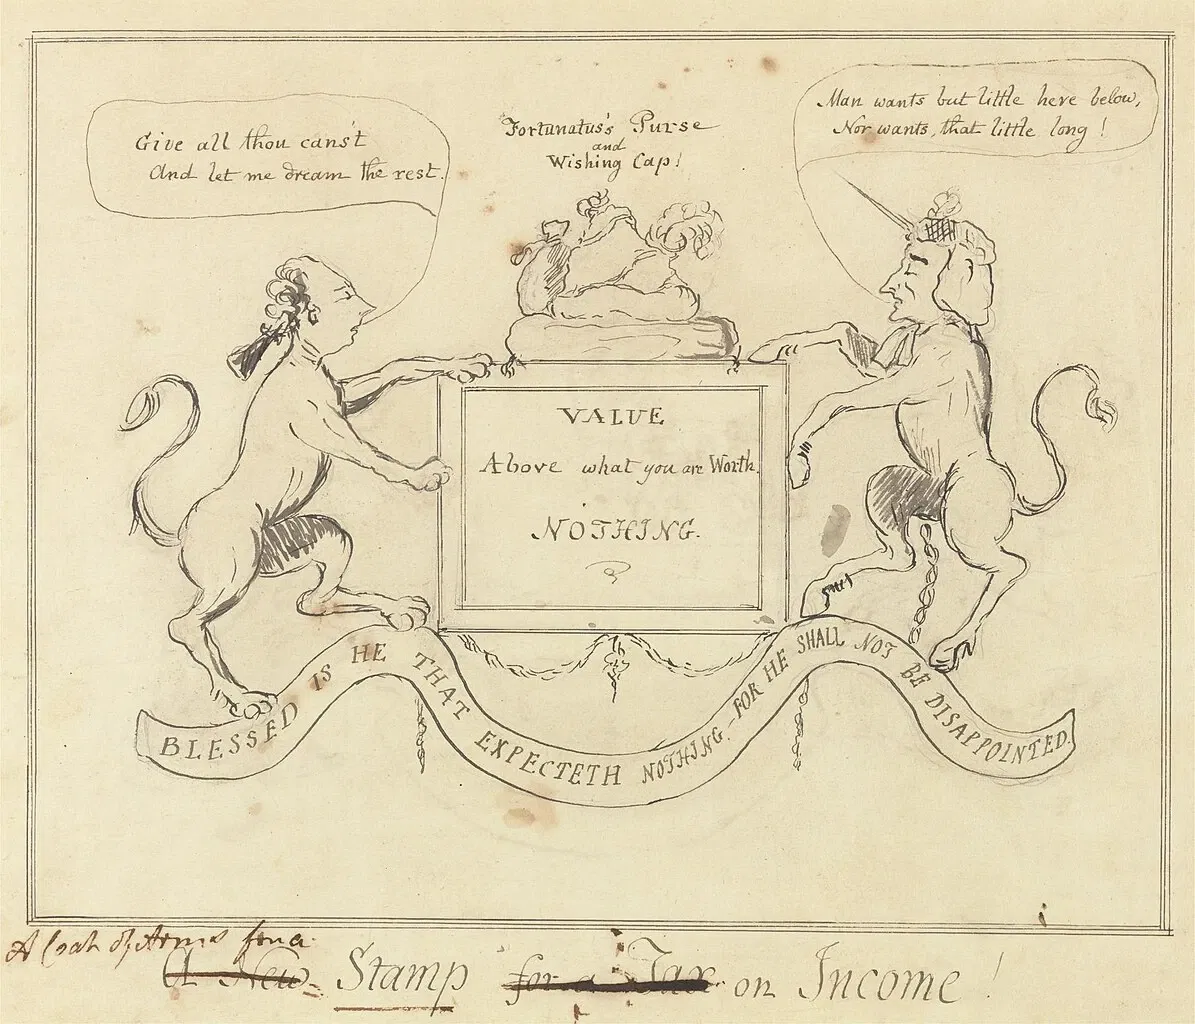 Give all thou can'st
And let me dream the rest.
Fortunatus's Purse
and
Wishing Cap!
Man wants but little here below,
Nor wants, that little long!
VALUE
Above what you are Worth.
NOTHING.
BLESSED IS HE THAT EXPECTETH NOTHING. FOR HE SHALL NOT BE DISAPPOINTED.
A Coat of Arms for a
A New Stamp for a Tax on Income!